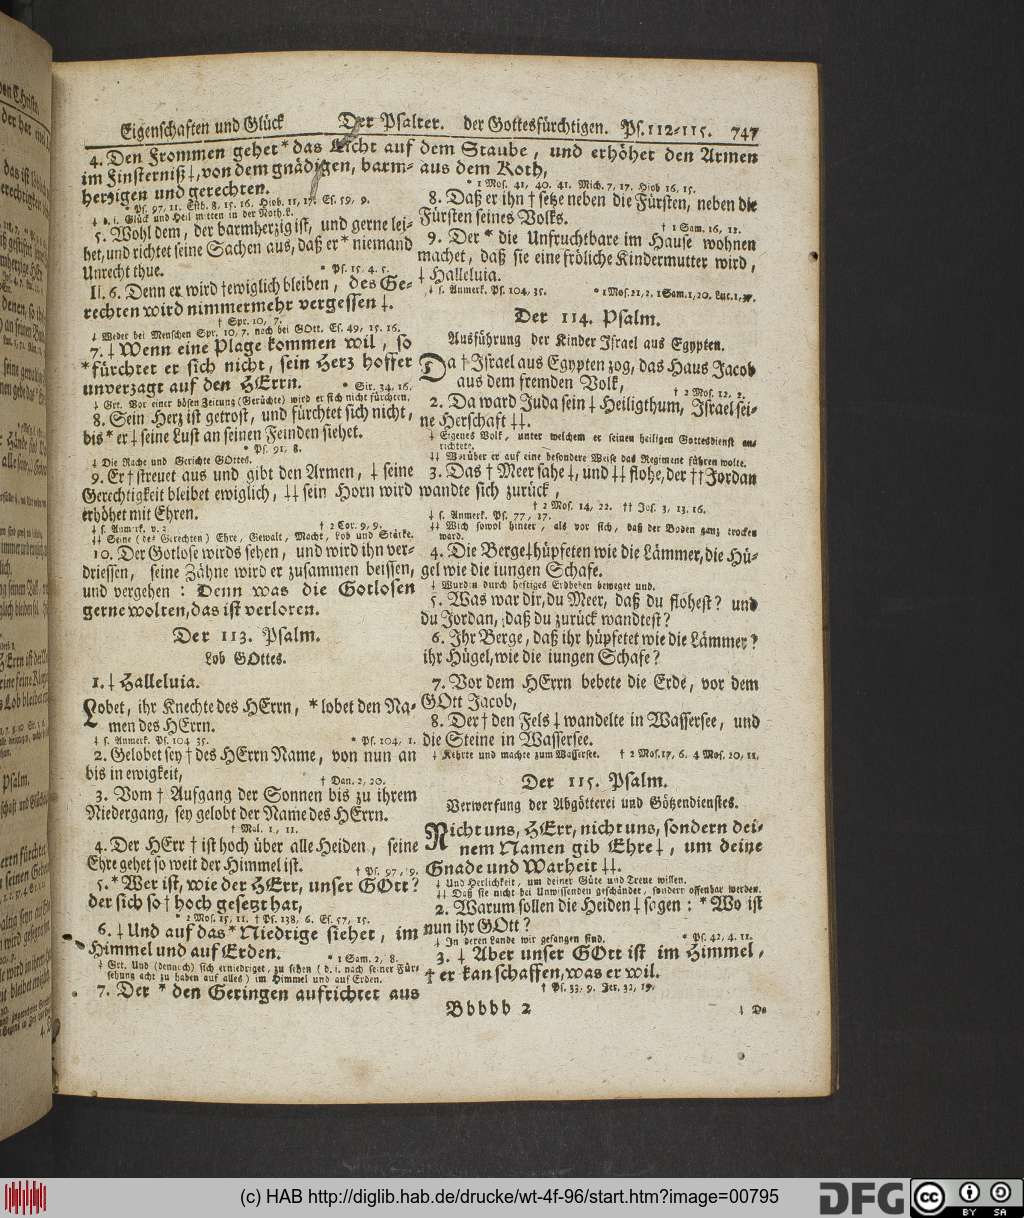 Eigenschaften und Glück Der Psalter. der Gottesfürchtigen. Ps. 112-115. 747
4. Den Frommen gehet * das Licht auf
im Finsterniß ⸸, von dem gnädigen, barm-
hertzigen und gerechten.
* Ps. 97, 11. Esth. 8, 15. 16. Hiob. 11, 17. Es. 59, 9.
⸸ d. i. Glück und Heil mitten in der Noth. L.
5. Wohl dem, der barmhertzig ist, und gerne lei-
het, und richtet seine Sachen aus, daß er * niemand
Unrecht thue. * Ps. 15. 4. 5.
II. 6. Denn er wird † ewiglich bleiben, des Ge-
rechten wird nimmermehr vergessen ⸸.
† Spr. 10, 7.
⸸ Weder bei Menschen Spr. 10, 7. noch bei GOtt. Es. 49, 15. 16.
7. ⸸ Wenn eine Plage kommen wil, so
* fürchtet er sich nicht, sein Hertz hoffet
unverzagt auf den HErrn. * Sir. 34, 16.
⸸ Grt. Vor einer bösen Zeitung (Gerüchte) wird er sich nicht fürchten.
8. Sein Hertz ist getrost, und fürchtet sich nicht,
bis * er ⸸ seine Lust an seinen Feinden siehet.
* Ps. 91, 8.
⸸ Die Rache und Gerichte GOttes.
9. Er † streuet aus und gibt den Armen, ⸸ seine
Gerechtigkeit bleibet ewiglich, ⸸⸸ sein Horn wird
erhöhet mit Ehren.
⸸ s. Anmerk. v. 2. † 2 Cor. 9, 9.
⸸⸸ Seine (des Gerechten) Ehre, Gewalt, Macht, Lob und Stärke.
10. Der Gotlose wirds sehen, und wird ihn ver-
driessen, seine Zähne wird er zusammen beissen,
und vergehen: Denn was die Gotlosen
gerne wolten, das ist verloren.
Der 113. Psalm.
Lob GOttes.
1. ⸸ Halleluia.
Lobet, ihr Knechte des HErrn, * lobet den Na-
men des HErrn.
⸸ s. Anmerk. Ps. 104 35. * Ps. 104, 1.
2. Gelobet sey † des HErrn Name, von nun an
bis in ewigkeit, † Dan. 2, 20.
3. Vom † Aufgang der Sonnen bis zu ihrem
Niedergang, sey gelobt der Name des HErrn.
† Mal. 1, 11.
4. Der HErr † ist hoch über alle Heiden, seine
Ehre gehet so weit der Himmel ist. † Ps. 97, 9.
5. * Wer ist, wie der HErr, unser GOtt?
der sich so † hoch gesetzt hat,
* 2 Mos. 15, 11. † Ps. 138, 6. Es. 57, 15.
6. ⸸ Und auf das * Niedrige siehet, im
Himmel und auf Erden. * 1 Sam. 2, 8.
⸸ Grt. Und (dennoch) sich erniedriget, zu sehen (d. i. nach seiner Für-
sehung acht zu haben auf alles) im Himmel und auf Erden.
7. Der * den Geringen aufrichtet aus
dem Staube, und erhöhet den Armen
aus dem Koth,
* 1 Mos. 41, 40. 41. Mich. 7, 17. Hiob 16, 15.
8. Daß er ihn † setze neben die Fürsten, neben die
Fürsten seines Volks. † 1 Sam. 16, 12.
9. Der * die Unfruchtbare im Hause wohnen
machet, daß sie eine fröliche Kindermutter wird,
⸸ Halleluia.
⸸ s. Anmerk. Ps. 104, 35. * 1 Mos. 21, 2. 1 Sam. 1, 20. Luc. 1,
Der 114. Psalm.
Ausführung der Kinder Israel aus Egypten.
Da † Israel aus Egypten zog, das Haus Jacob
aus dem fremden Volk, † 2 Mos. 12. 2.
2. Da ward Juda sein ⸸ Heiligthum, Israel sei-
ne Herschaft ⸸⸸.
⸸ Eigenes Volk, unter welchem er seinen heiligen Gottesdienst an-
richtete.
⸸⸸ Worüber er auf eine besondere Weise das Regiment führen wolte.
3. Das † Meer sahe ⸸, und ⸸⸸ flohe, der †† Jordan
wandte sich zurück,
† 2 Mos. 14, 22. †† Jos. 3, 13. 16.
⸸ s. Anmerk. Ps. 77, 17.
⸸⸸ Wich sowol hinter, als vor sich, daß der Boden gantz trocken
ward.
4. Die Berge ⸸ hüpfeten wie die Lämmer, die Hü-
gel wie die iungen Schafe.
⸸ Wurden durch heftiges Erdbeben beweget und.
5. Was war dir, du Meer, daß du flohest? und
du Jordan, daß du zurück wandtest?
6. Ihr Berge, daß ihr hüpfetet wie die Lämmer?
ihr Hügel, wie die iungen Schafe?
7. Vor dem HErrn bebete die Erde, vor dem
GOtt Jacob,
8. Der † den Fels ⸸ wandelte in Wassersee, und
die Steine in Wassersee.
⸸ Kehrte und machte zum Wassersee. † 2 Mos. 17, 6. 4 Mos. 20, 11.
Der 115. Psalm.
Verwerfung der Abgötterei und Götzendienstes.
Nicht uns, HErr, nicht uns, sondern dei-
nem Namen gib Ehre ⸸, um deine
Gnade und Warheit ⸸⸸.
⸸ Und Herlichkeit, um deiner Güte und Treue willen.
⸸⸸ Daß sie nicht bei Unwissenden geschändet, sondern offenbar werden.
2. Warum sollen die Heiden ⸸ sagen: * Wo ist
nun ihr GOtt?
⸸ In deren Lande wir gefangen sind. * Ps. 42, 4. 11.
3. ⸸ Aber unser GOtt ist im Himmel,
† er kan schaffen, was er wil.
† Ps. 33, 9. Jer. 32, 19.
Bbbbb 2 ⸸ Da
(c) HAB http://diglib.hab.de/drucke/wt-4f-96/start.htm?image=00795
DFG cc BY SA